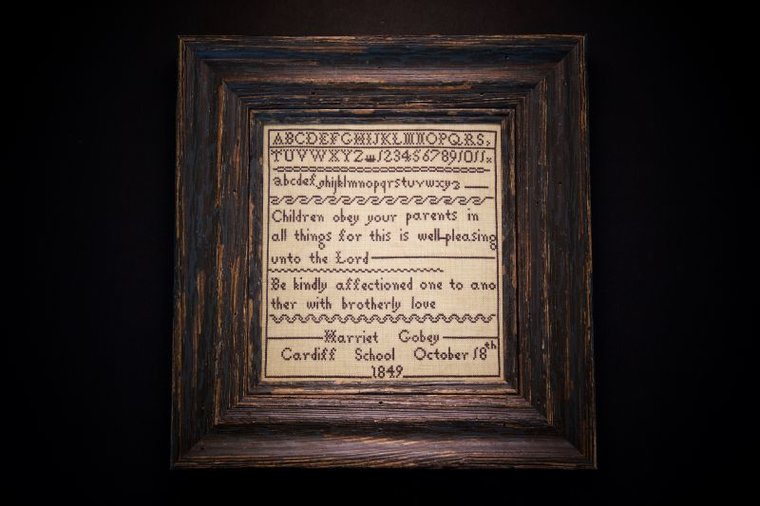 ABCDEFGHIJKLMNOPQRS,
TUVWXYZ 1234567891011
abcdefghijklmnopqrstuvwxyz
Children obey your parents in
all things for this is well-pleasing
unto the Lord
Be kindly affectioned one to ano
ther with brotherly love
Harriet Gobey
Cardiff School October 18th
1849